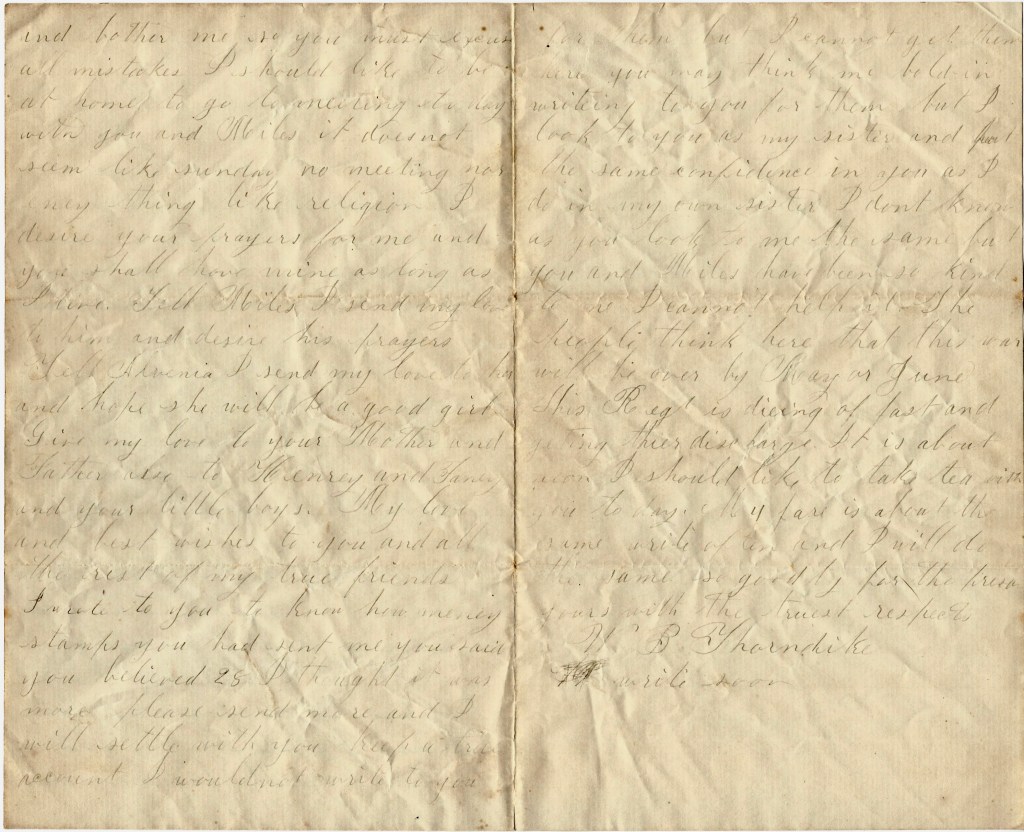 and bother me so you must excuse
all mistakes I should like to be
at home to go to meeting to day
with you and Miles it doesnot
seem like sunday no meeting nor
eney thing like religion I
desire your prayers for me and
you shall have mine as long as
I live. Tell Miles I send my love
to him and desire his prayers
Tell Alvenia I send my love to her
and hope she will be a good girl
Give my love to your Mother and
Father also to Henrey and
and your little boys. My love
and best wishes to you and all
the rest of my true friends
I wrote to you to know how meney
stamps you had sent me you said
you believed 25 I thought it was
more please send more and I
will settle with you keep a true
account I wouldnot write to you
for them but I cannot get them
here you may think me bold in
writeing to you for them but I
look to you as my sister and put
the same confidence in you as I
do in my own sister I dont know
as you look to me the same but
you and Miles have been so kind
to me I cannot help it The
people think here that this war
will be over by May or June
this Regt is dieing of fast and
geting thier discharge It is about
noon I should like to take tea with
you to day. My fare is about the
same write often and I will do
the same so good by for the presen
yours with the truest respects
W B Thorndike
write soon